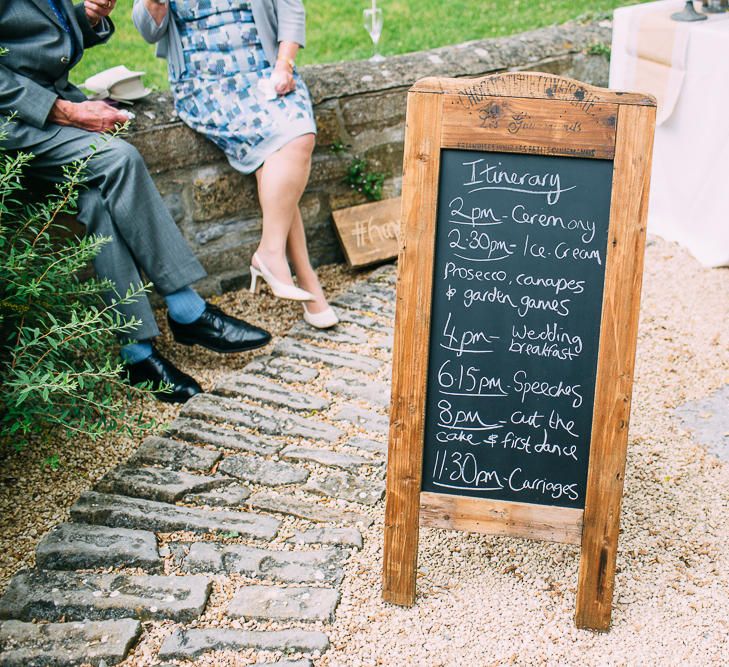 Les Gourmands
Itinerary
2pm - Ceremony
2.30pm - Ice. Cream
Prosecco, canapes
& garden games
4pm - Wedding
breakfast
6.15pm - Speeches
8pm - Cut the
cake & first dance
11.30pm - Carriages